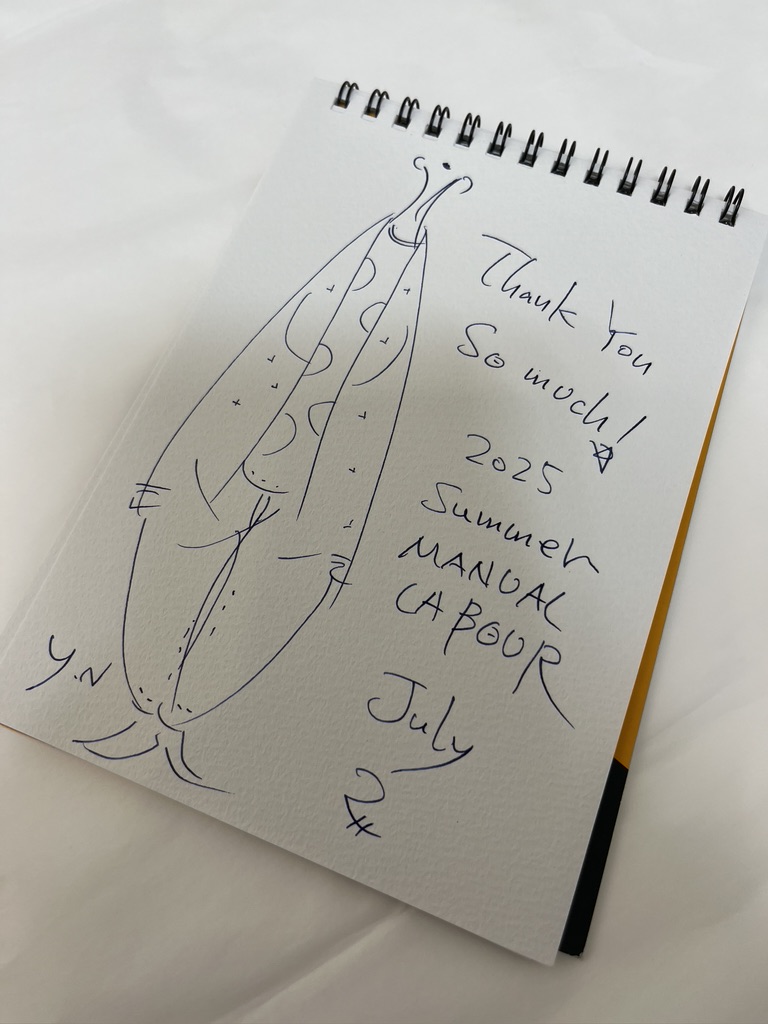 Thank You
So much!
2025
Summer
MANUAL
LABOUR
July
2
Y.N